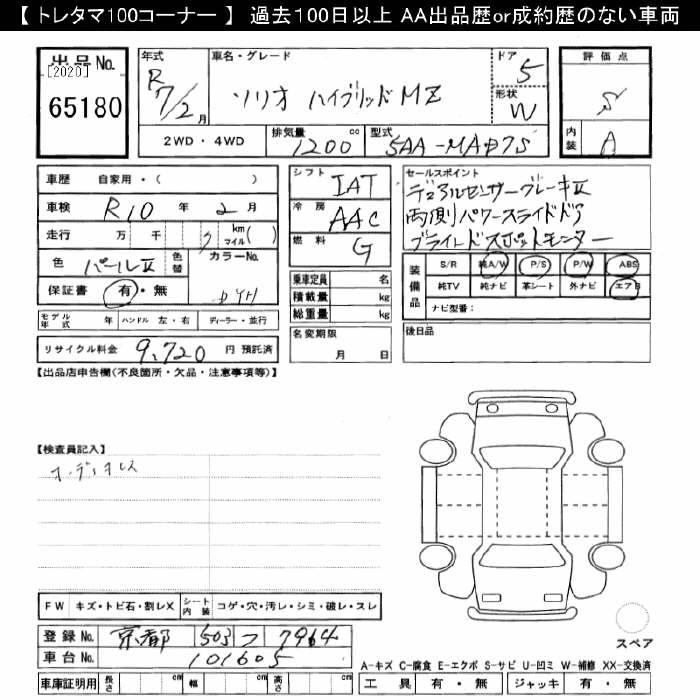 【 トレタマ100コーナー 】 過去100日以上 AA出品歴or成約歴のない車両
出品No.
[2020]
65180
年式 R7/2月
車名・グレード
ソリオ ハイブリッドMZ
ドア 5
形状 W
評価点
S
内装 A
2WD・4WD
排気量 1200 cc
型式 5AA-MAD7S
車歴 自家用・( )
車検 R10 年 2 月
走行 万 千 km マイル( )
色 パールII 色替
カラーNo.
保証書 有・無
モデル年式 年 ハンドル 左・右 ディーラー・並行
リサイクル料金 9,720 円 預託済
シフト IAT
冷房 AAC
燃料 G
乗車定員 名
積載量 kg
総重量 kg
名変期限
月 日
セールスポイント
デュアルセンサーブレーキII
両側パワースライドドア
ブラインドスポットモニター
装備品
S/R 純A/W P/S P/W ABS
純TV 純ナビ 革シート 外ナビ エアB
ナビ型番:
後日品
【出品店申告欄(不良箇所・欠品・注意事項等)】
【検査員記入】
オーディオレス
FW キズ・トビ石・割レX シート内装 コゲ・穴・汚レ・シミ・破レ・スレ
登録No. 京都 503 フ 7964
車台No. 101605
車庫証明用 長さ cm 幅 cm 高さ cm
スペア
A-キズ C-腐食 E-エクボ S-サビ U-凹ミ W-補修 XX-交換済
工具 有・無 ジャッキ 有・無